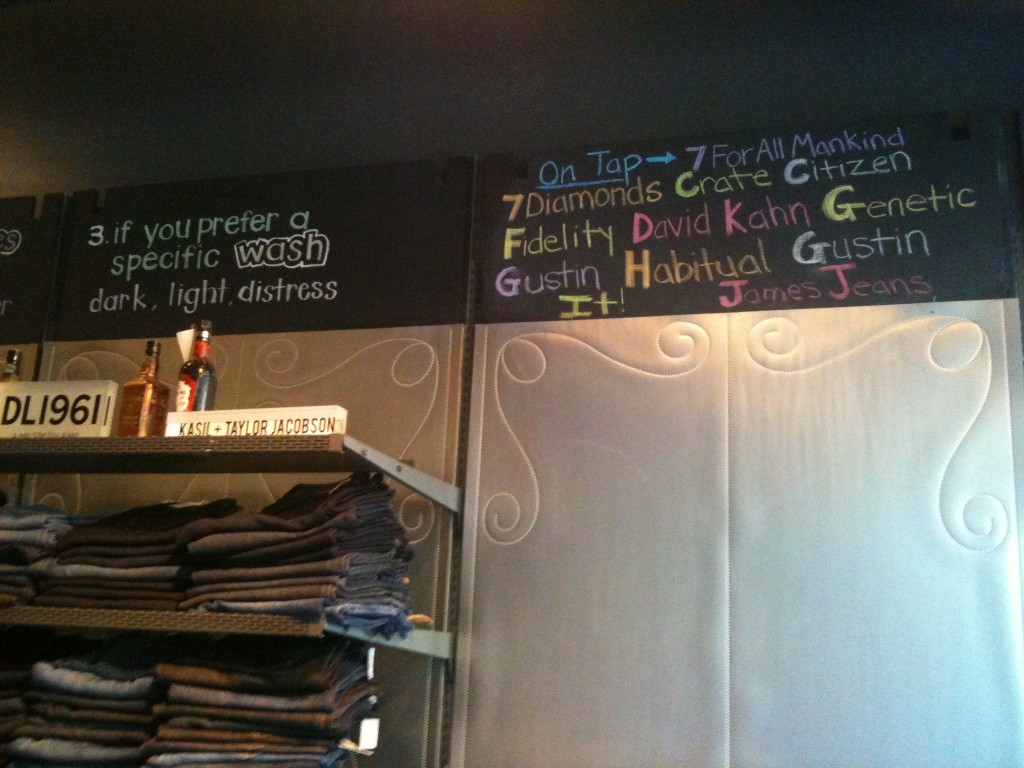 3. if you prefer a
specific wash
dark, light, distress
On Tap → 7 For All Mankind
7 Diamonds Crate Citizen
Fidelity David Kahn Genetic
Gustin Habitual Gustin
It! James Jeans
DL1961
KASIL + TAYLOR JACOBSON